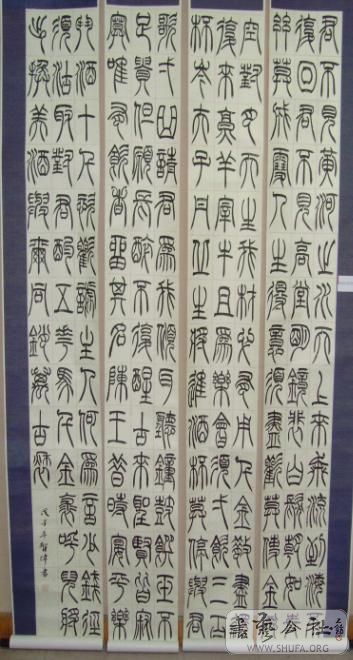 君不見黃河之水天上來奔流到海不
復回君不見高堂明鏡悲白髮朝如青
絲暮成雪人生得意須盡歡莫使金樽
空對月天生我材必有用千金散盡還
復來烹羊宰牛且為樂會須一飲三百
杯岑夫子丹丘生將進酒杯莫停與君
歌一曲請君為我傾耳聽鐘鼓饌玉不
足貴但願長醉不復醒古來聖賢皆寂
寞唯有飲者留其名陳王昔時宴平樂
斗酒十千恣歡謔主人何為言少錢徑
須沽取對君酌五花馬千金裘呼兒將
出換美酒與爾同銷萬古愁
戊子年書
WWW.SHUFA.ORG